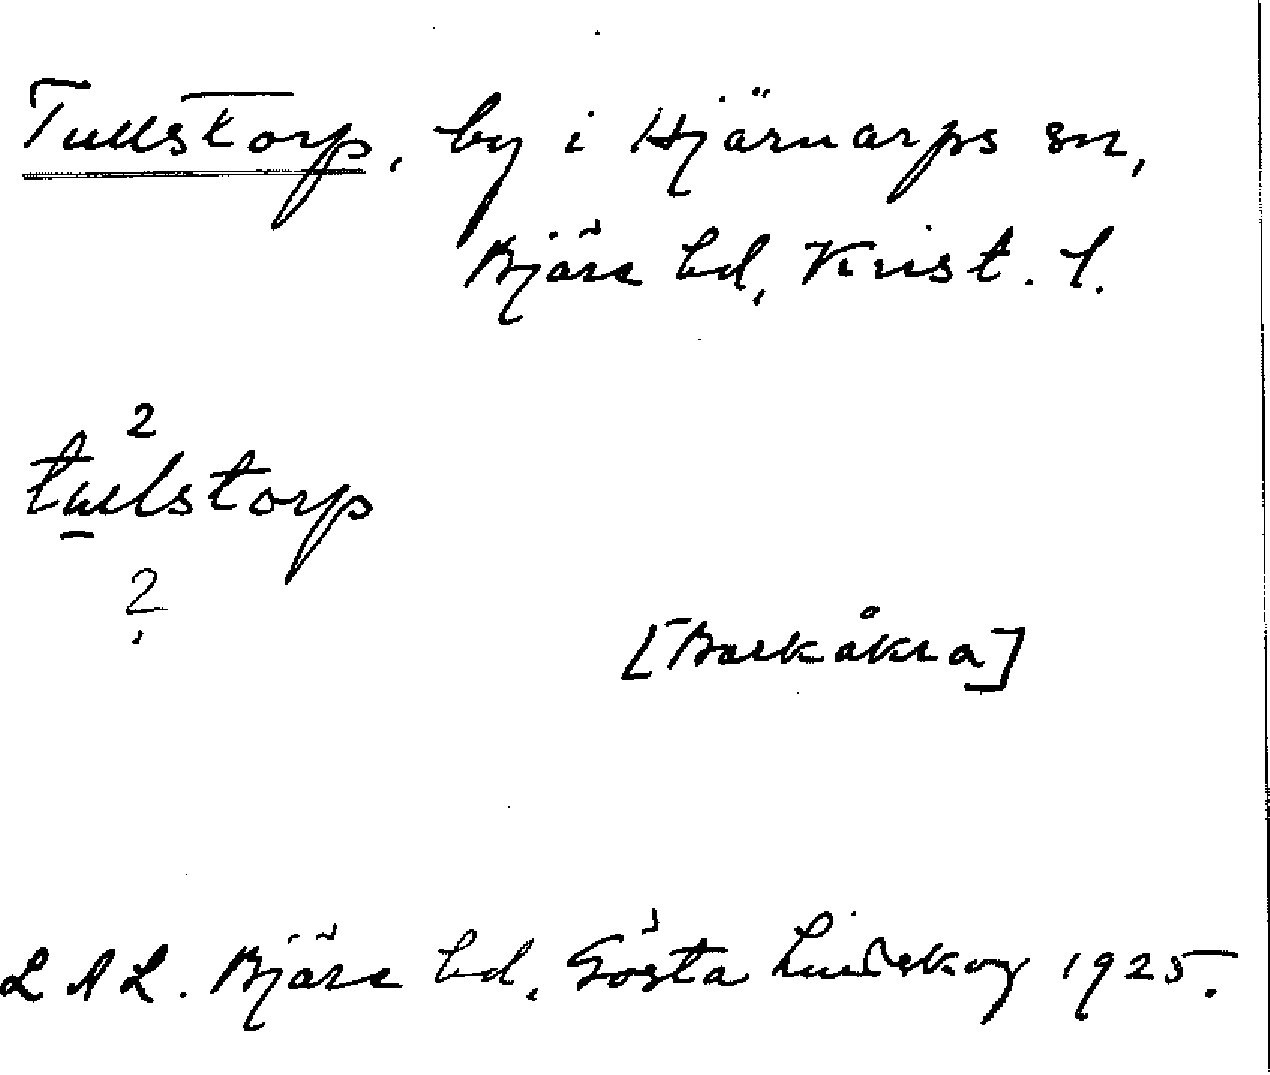 Tullstorp, by i Hjärnarps sn,
Bjäre hd, Krist. l.
2
tulstorp
2
[Barkåkra]
LAL. Bjäre hd, Gösta Lindskog 1925.